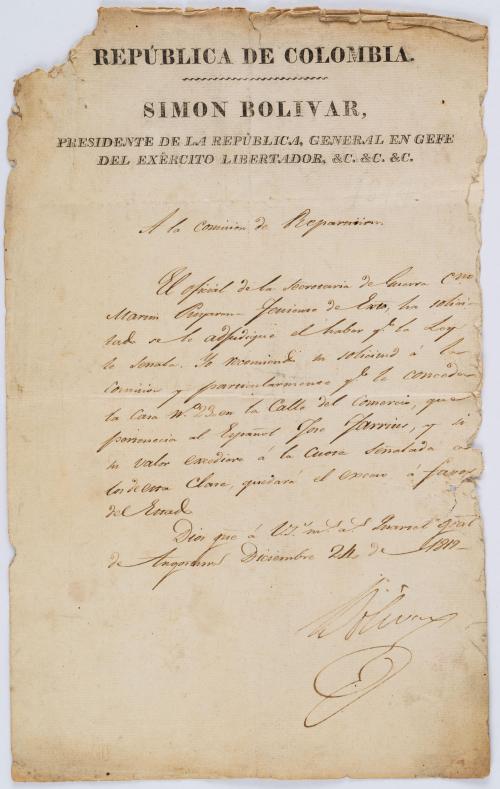 REPÚBLICA DE COLOMBIA.
SIMON BOLIVAR,
PRESIDENTE DE LA REPÚBLICA, GENERAL EN GEFE
DEL EXÈRCITO LIBERTADOR, &C. &C. &C.
A la Comision de Reparticion.
El oficial de la Secretaria de Guerra
Martin Teniente de Exto, ha solici-
tado se le adjudique el haber qe. la Ley
le señala. Yo recomiendo su solicitud á la
Comision y particularmente qe. le conceda
la Casa Nº. 23 en la Calle del Comercio, que
pertenecia al Español José y si
su valor excediere á la Cuota señalada a
los de esta Clase, quedará el exceso á favor
del Estado
Dios gue á VS. ms. as. Quartel gral
de Angostura Diciembre 24 de
Bolivar